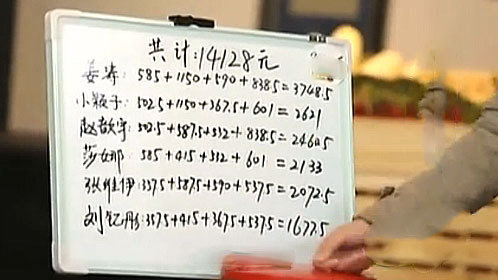 共计:14128元
姜涛: 585+1150+590+838.5=3748.5
小毅子: 502.5+1150+367.5+601=2621
赵歆宇: 502.5+587.5+532+838.5=2460.5
莎娜: 585+415+532+601=2133
张维伊: 357.5+587.5+590+537.5=2072.5
刘钇彤: 357.5+415+367.5+537.5=1677.5